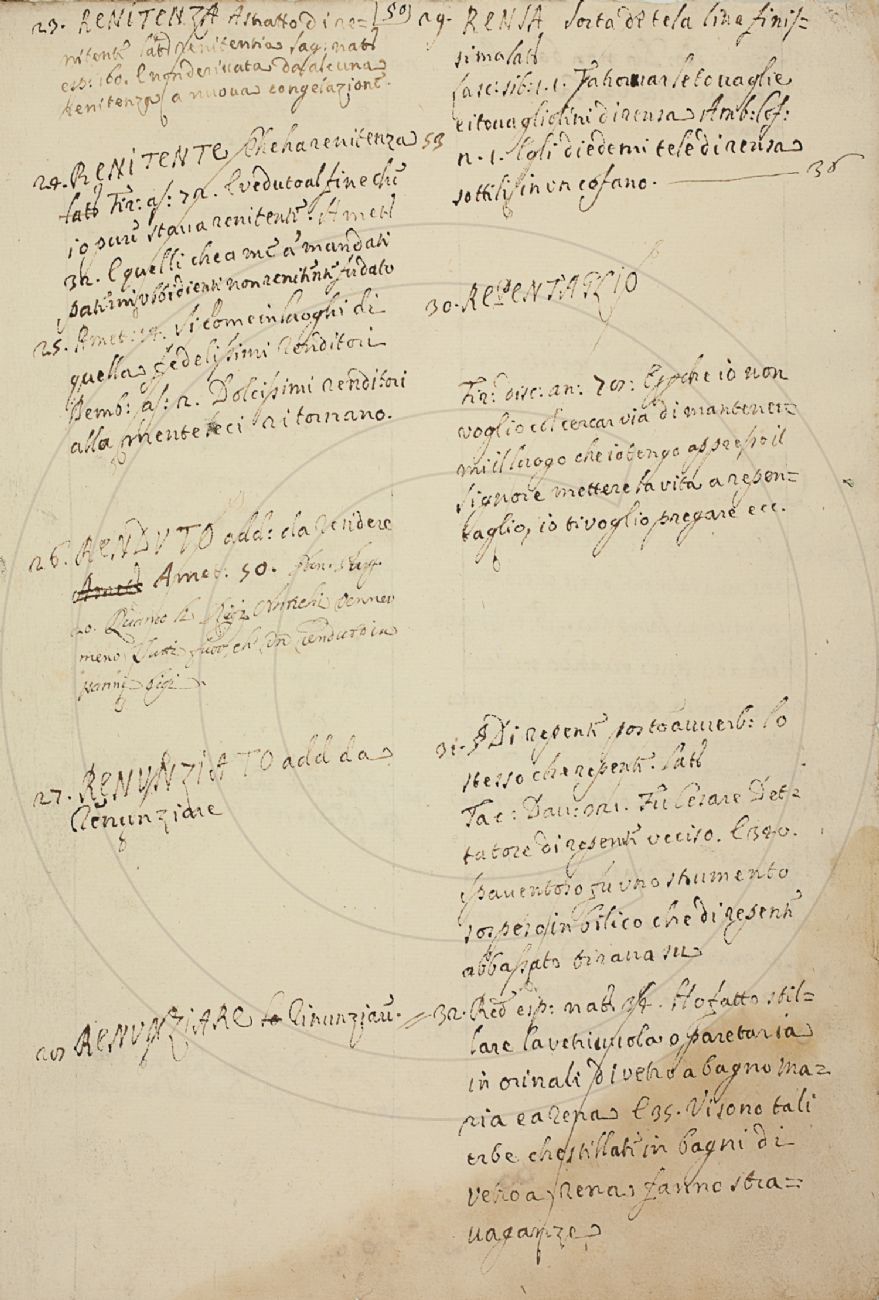 23. RENITENZA Astratto di re= [50]
nitente latt renitentia Sag: nat:
esp: 160. E non derivata da alcuna
renitenza a nuova congelazione.
24. RENITENTE Che ha renitenza 53
latt Fir: as: 72. E veduto al fine che
io pure stava renitente. Amet
32. E quelli che a me à mandati
patiremi vbbidienti non renitenti
25. Amet: 54. Si come in luoghi di
quella fedelissimi renditori
Bemb: as: 2. Dolcissimi renditori
alla mente ritornano.
26. RENDUTO add: da Rendere
Amet: 50.
20. Quanto li Regi Antichi venner
meno
27. RENUNZIATO add da
Renunziare
28 RENUNZIARE Rinunziare.
29. RENSA Sorta di tela lina finis=
sima latt
Lasc: sib: 1.1. Fa trovar le tovaglie
e i tovagliolini di rensa Amb: Cof:
n. 1. Egli diedemi tele di rensa
sottilis in un cofano. 36
30. REPENTAGLIO
Fir: disc: an: 78: E perche io non
voglio col cercar via di mantener=
mi il luogo che io tengo appresso il
signore mettere la vita a repen=
taglio, io ti voglio pregare ecc.
31. § Di repente posto avverb: lo
stesso che repente. latt
Tac: Dav: 21. Fu Cesare Det=
tatore di repente ucciso. E 380.
spaventoso fu uno strumento
sospeso in bilico che di repente
abbassato tirava su
32. Red esp: nat: 34. Ho fatto stil=
lare la vetriuola o paretaria
in orinali di vetro a bagno ma=
ria e a rena E 35. Vi sono tali
erbe che stillate in bagni di
vetro a rena fanno stra=
vaganze